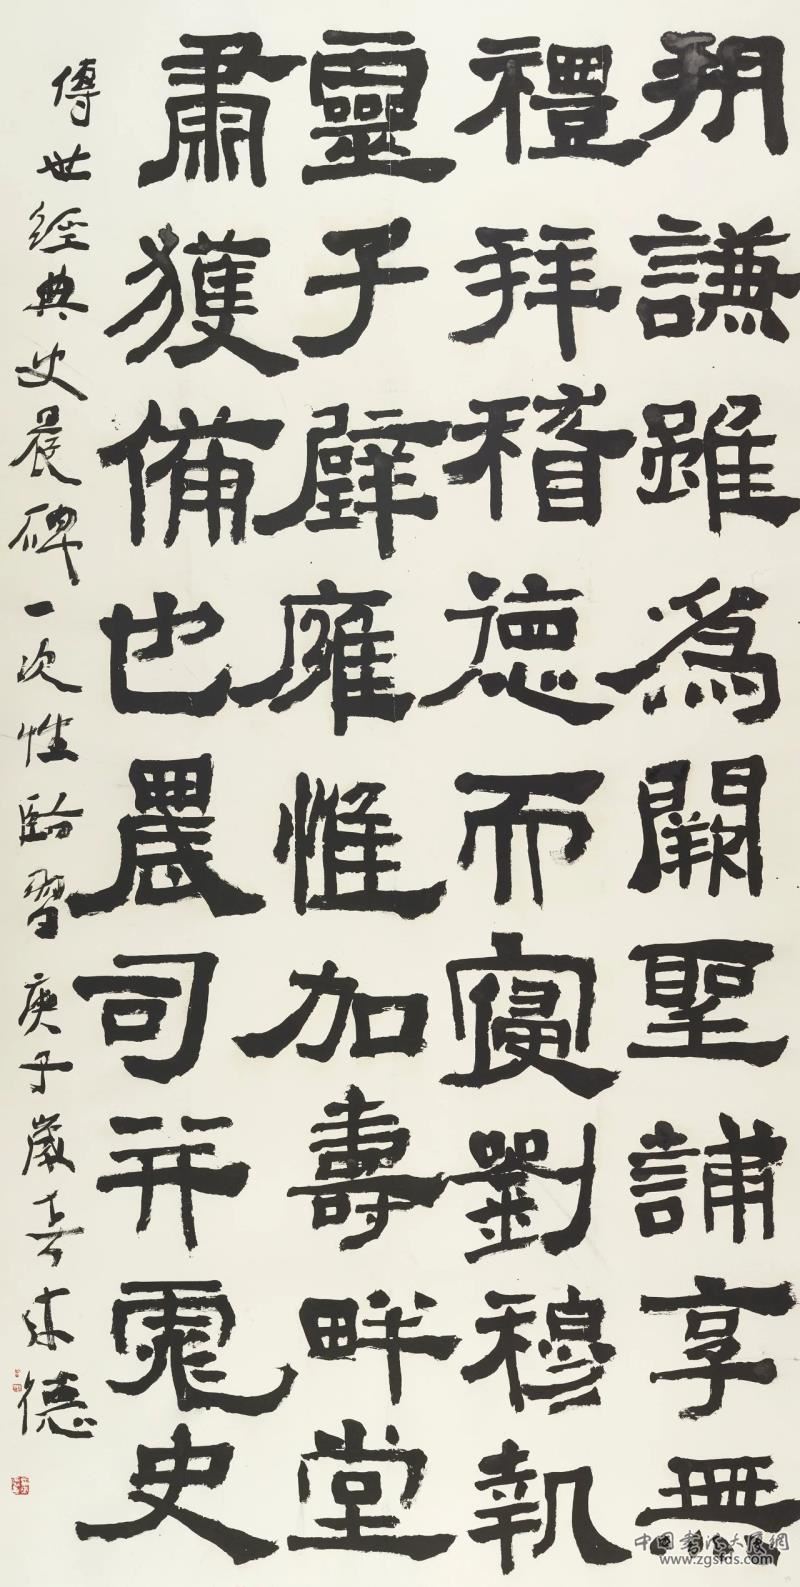 朔謙雖為闕聖誦享無
禮拜稽德而寑劉穆執
靈子辟雍惟加壽畔堂
肅獲備也農司并史
傳世經典史晨碑一次性臨習庚子歲來德
中国书法大展網
www.zgsfds.com